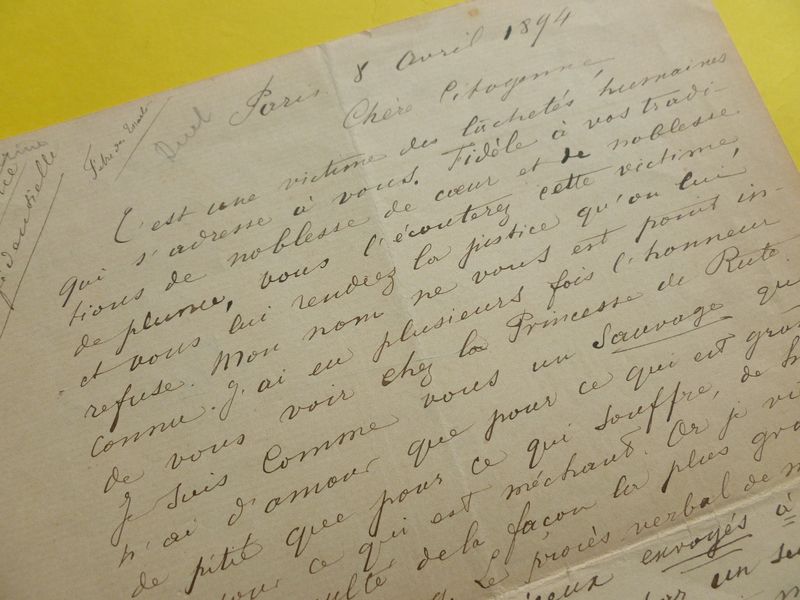 Paris 8 Avril 1894
Duel
Chère Citoyenne,
C'est une victime des lâchetés humaines
qui s'adresse à vous. Fidèle à vos tradi-
tions de noblesse de cœur et de noblesse
de plume, vous l'écouterez cette victime,
et vous lui rendrez la justice qu'on lui
refuse. Mon nom ne vous est point in-
connu. J'ai eu plusieurs fois l'honneur
de vous voir chez la Princesse de Rute.
Je suis comme vous un sauvage qui
n'ai d'amour que pour ce qui est
de pitié que pour ce qui souffre, de
pour ce qui est méchant. Or je
de la façon la plus
Le procès verbal de
envoyés à
un